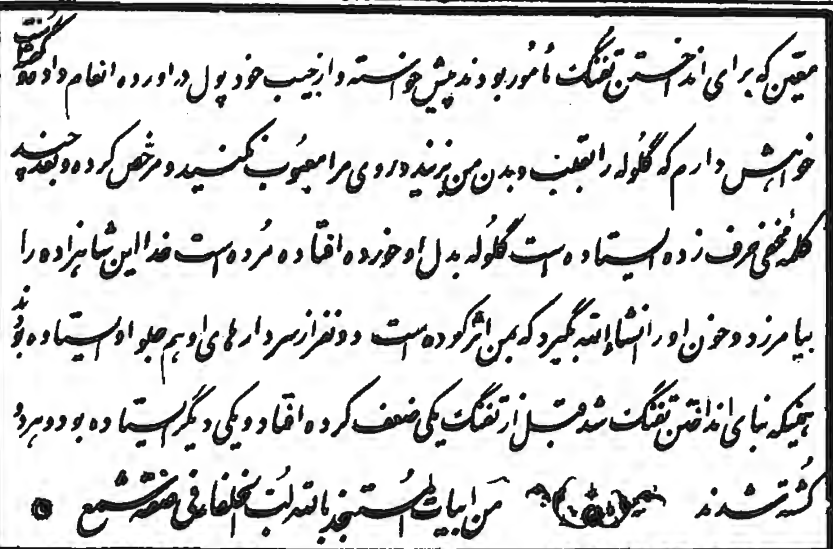 معیّن که برای انداختن تفنگ مأمور بودند پیش خواسته و از جیب خود پول در آورده انعام داده گفت
خواهش دارم که گلوله را بقلب و بدن من بزنید و روی مرا معیوب نکنید و مرخص کرده و بعد چند
کلمه مخفی حرف زده ایستاده است گلوله بدل او خورده افتاده مرده است خدا این شاهزاده را
بیامرزد و خون او را انشاءالله بگیرد که بمن اثر کوده است دو نفر از سردارهای او هم جلو او ایستاده بودند
همینکه بنای انداختن تفنگ شد قبل از تفنگ یکی ضعف کرده افتاد و یکی دیگر ایستاده بود و هردو
کشته شدند من ابیات المستنجد بالله لب الخلفاء فی صفة شمع